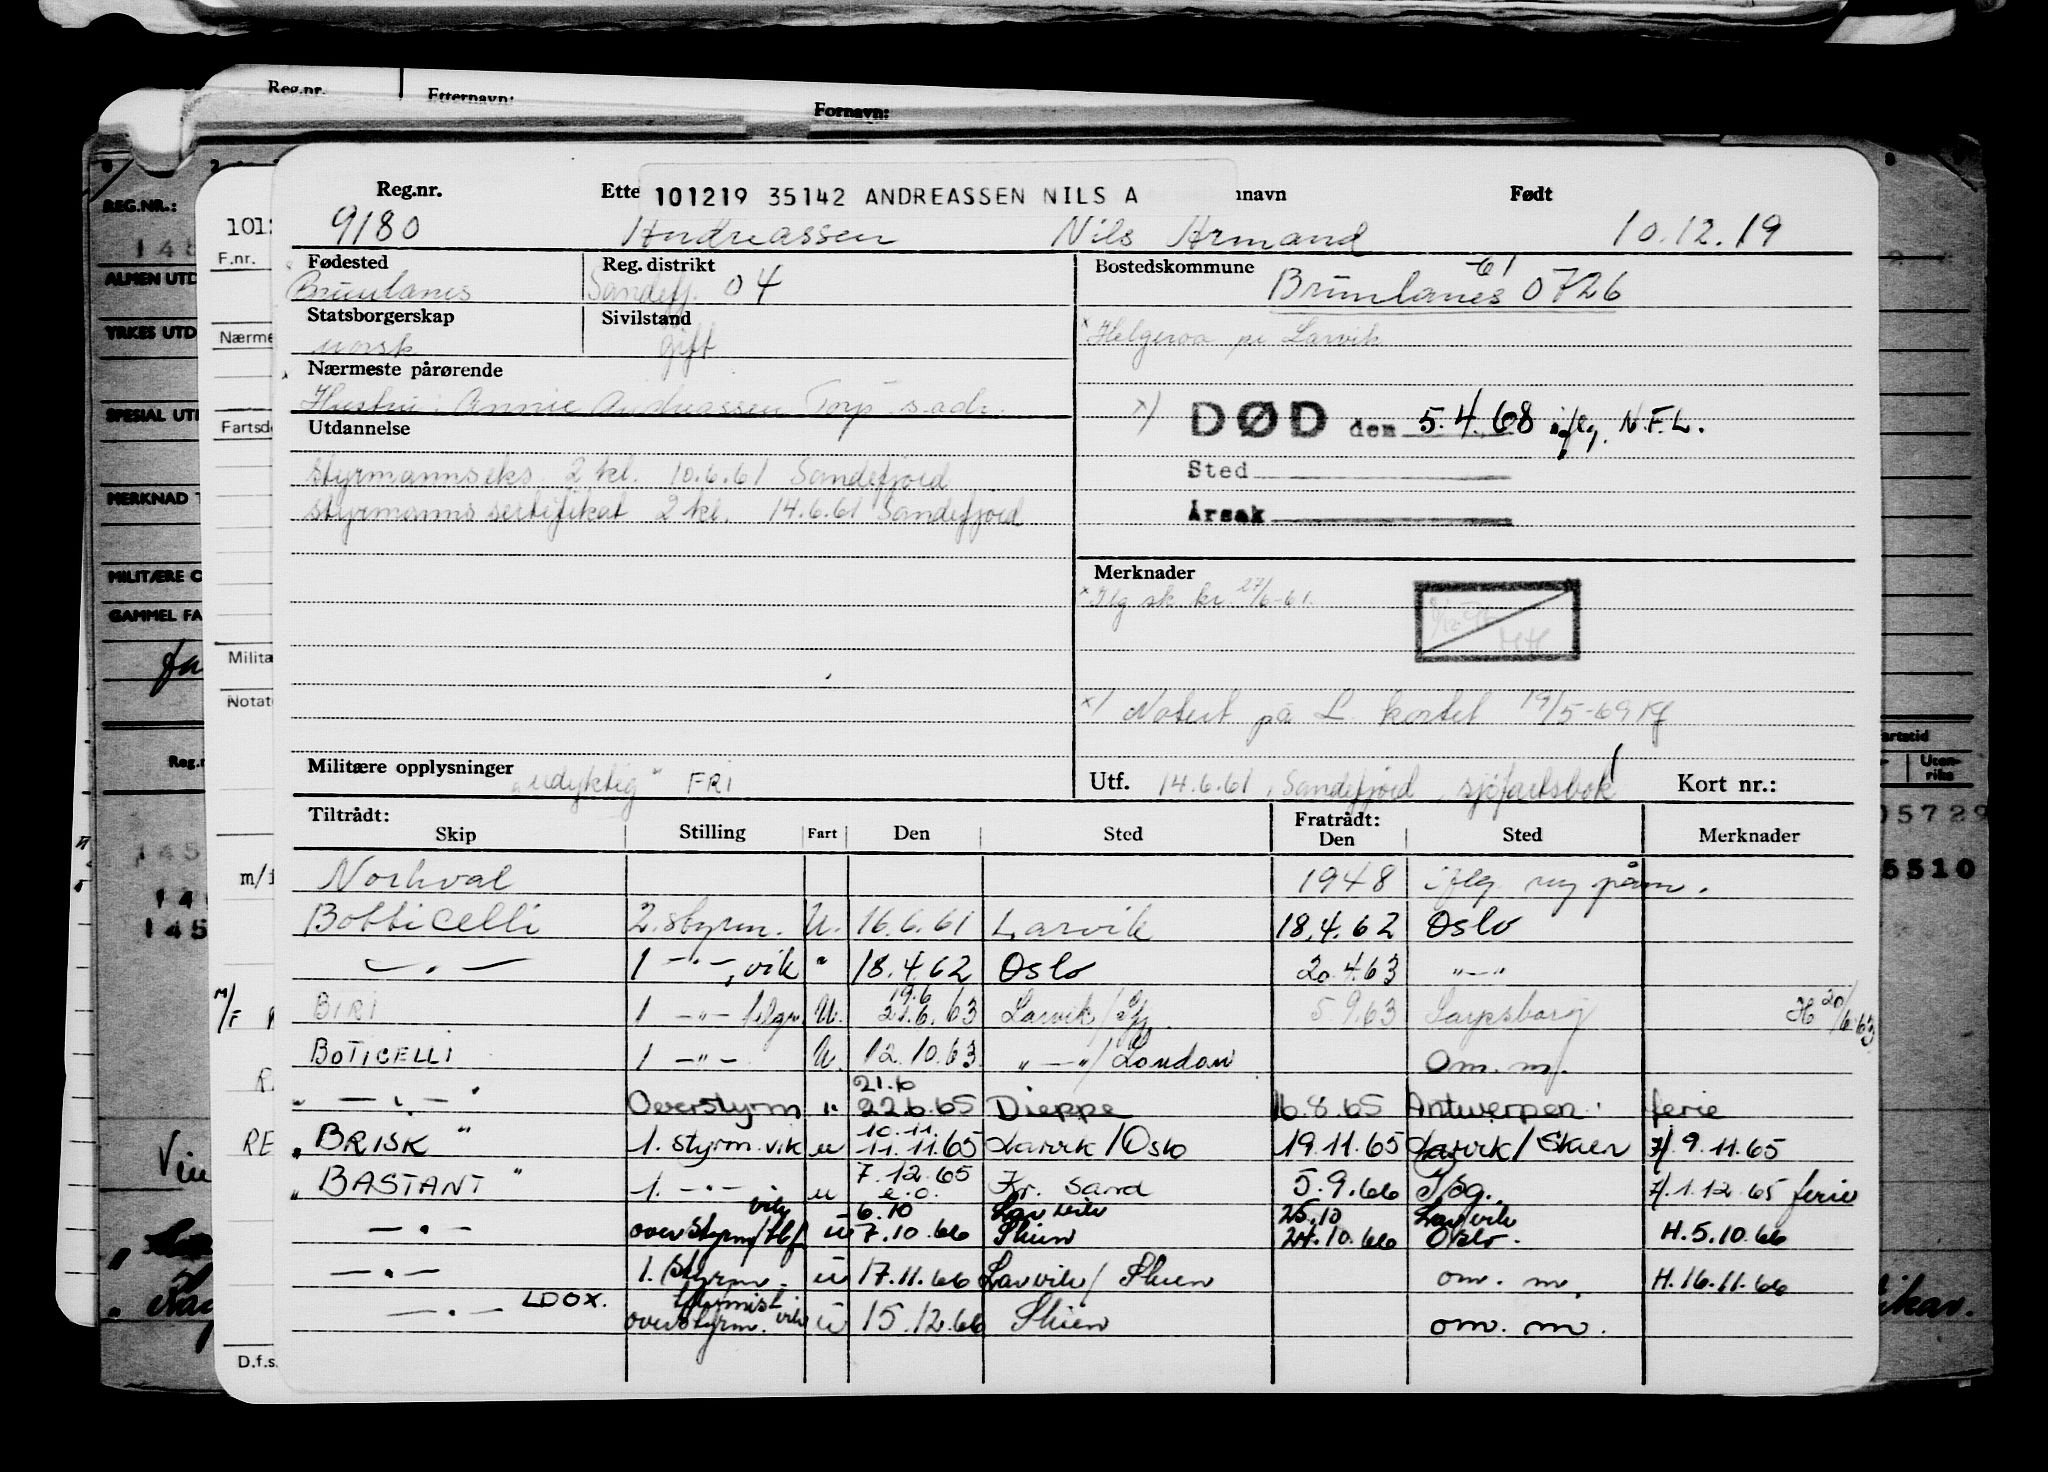 Reg.nr. Etternavn:
Fornavn:
REG.NR.:
ALMEN UTD
YRKES UTD
SPESIAL UTD
MERKNAD
MILITÆRE O
GAMMEL FA
1012
F.nr.
Nærme
Fartsd
Milita
Notat
D.f.s.
Reg.nr. Ette 101219 35142 ANDREASSEN NILS A nnavn Født
9180 Andreassen Nils Armand 10.12.19
Fødested Reg. distrikt Bostedskommune -61
Brunlanes Sandefj. 04 Brunlanes 0726
Statsborgerskap Sivilstand
norsk gift x Helgeroa pr Larvik
Nærmeste pårørende
Hustru: Annie Andreassen s.adr.
x) DØD den 5.4.68 iflg. N.F.L.
Utdannelse
Sted
styrmannseks 2 kl. 10.6.61 Sandefjord
styrmannssertifikat 2 kl. 14.6.61 Sandefjord
Årsak
Merknader
x Iflg sk kr. 27/6-61.
x) Notert på L kortet 19/5-69 Kf
Militære opplysninger "udyktig" FRI Utf. 14.6.61, Sandefjord, sjøfartsbok Kort nr.: 1
Tiltrådt: Fratrådt:
Skip Stilling Fart Den Sted Den Sted Merknader
Norhval 1948 iflg.
Botticelli 2. styrm. U. 16.6.61 Larvik 18.4.62 Oslo
— . — 1 -"-, vik " 18.4.62 Oslo 20.4.63 "—"
BIRI 1 -"- U. 19.6 21.6.63 Larvik / 5.9.63 Sarpsborg H 20/6.63
BOTICELLI 1 -"- U. 12.10.63 "—"/London Om. m.
" — . — " Overstyrm " 21.6 22.6.65 Dieppe 16.8.65 Antwerpen. ferie
" BRISK " 1. styrm. vik u 10.11 11.11.65 Larvik / Oslo 19.11.65 Larvik / Skien H. 9.11.65
" BASTANT " 1. -"- u 7.12.65 e.o. Kr. Sand 5.9.66 H. 1.12.65 ferie
— . — vik overstyrm u 6.10 7.10.66 Larvik Skien 25.10 24.10.66 Larvik Oslo. H. 5.10.66
— . — 1. styrm. u 17.11.66 Larvik / Skien om. m. H. 16.11.66
— . — LDOX. overstyrm. vik u 15.12.66 Skien om. m.